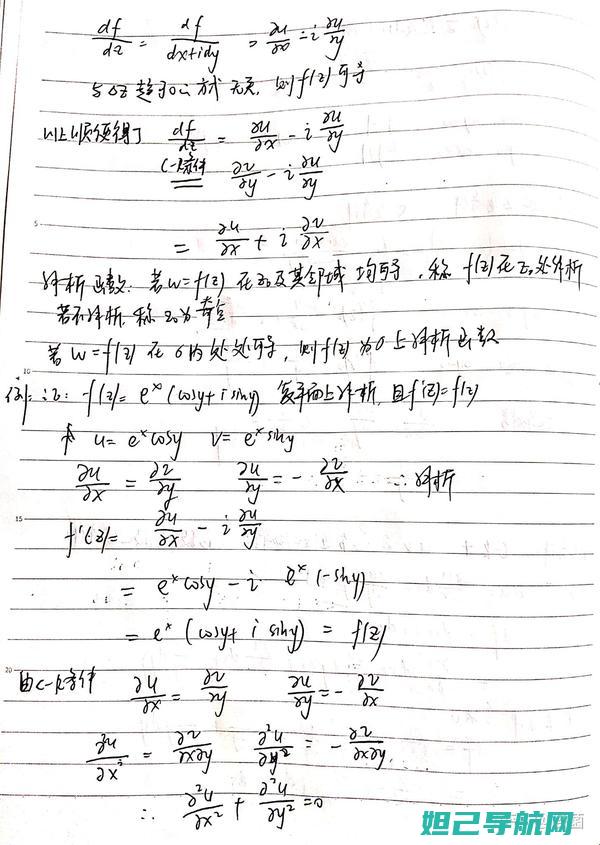 df/dz = df/dx+idy = ∂u/∂x - i ∂u/∂y
与Δz趋于0的方式无关, 则f(z)可导
以上顺便得了 df/dz = ∂u/∂x - i ∂u/∂y
C-R条件 ∂v/∂y - i ∂u/∂y
5
= ∂u/∂x + i ∂v/∂x
解析函数: 若w=f(z) 在z₀及其邻域 均可导, 称 f(z)在z₀处解析
若不解析, 称z₀为奇点
若 w=f(z) 在σ内处处可导, 则f(z)为σ上解析函数
10
例: 证: f(z)= eˣ(cosy+isiny) 复平面上解析, 且f'(z)=f(z)
u= eˣcosy v= eˣsiny
∂u/∂x = ∂v/∂y ∂u/∂y = - ∂v/∂x ∴解析
15
f'(z)= ∂u/∂x - i ∂u/∂y
= eˣcosy - i eˣ(-siny)
= eˣ(cosy+ i siny) = f(z)
20
由C-R条件 ∂u/∂x = ∂v/∂y ∂u/∂y = - ∂v/∂x
∂²u/∂x² = ∂v/∂x∂y ∂²u/∂y² = - ∂v/∂x∂y
∴ ∂²u/∂x² + ∂²u/∂y² =0
妲己导航网